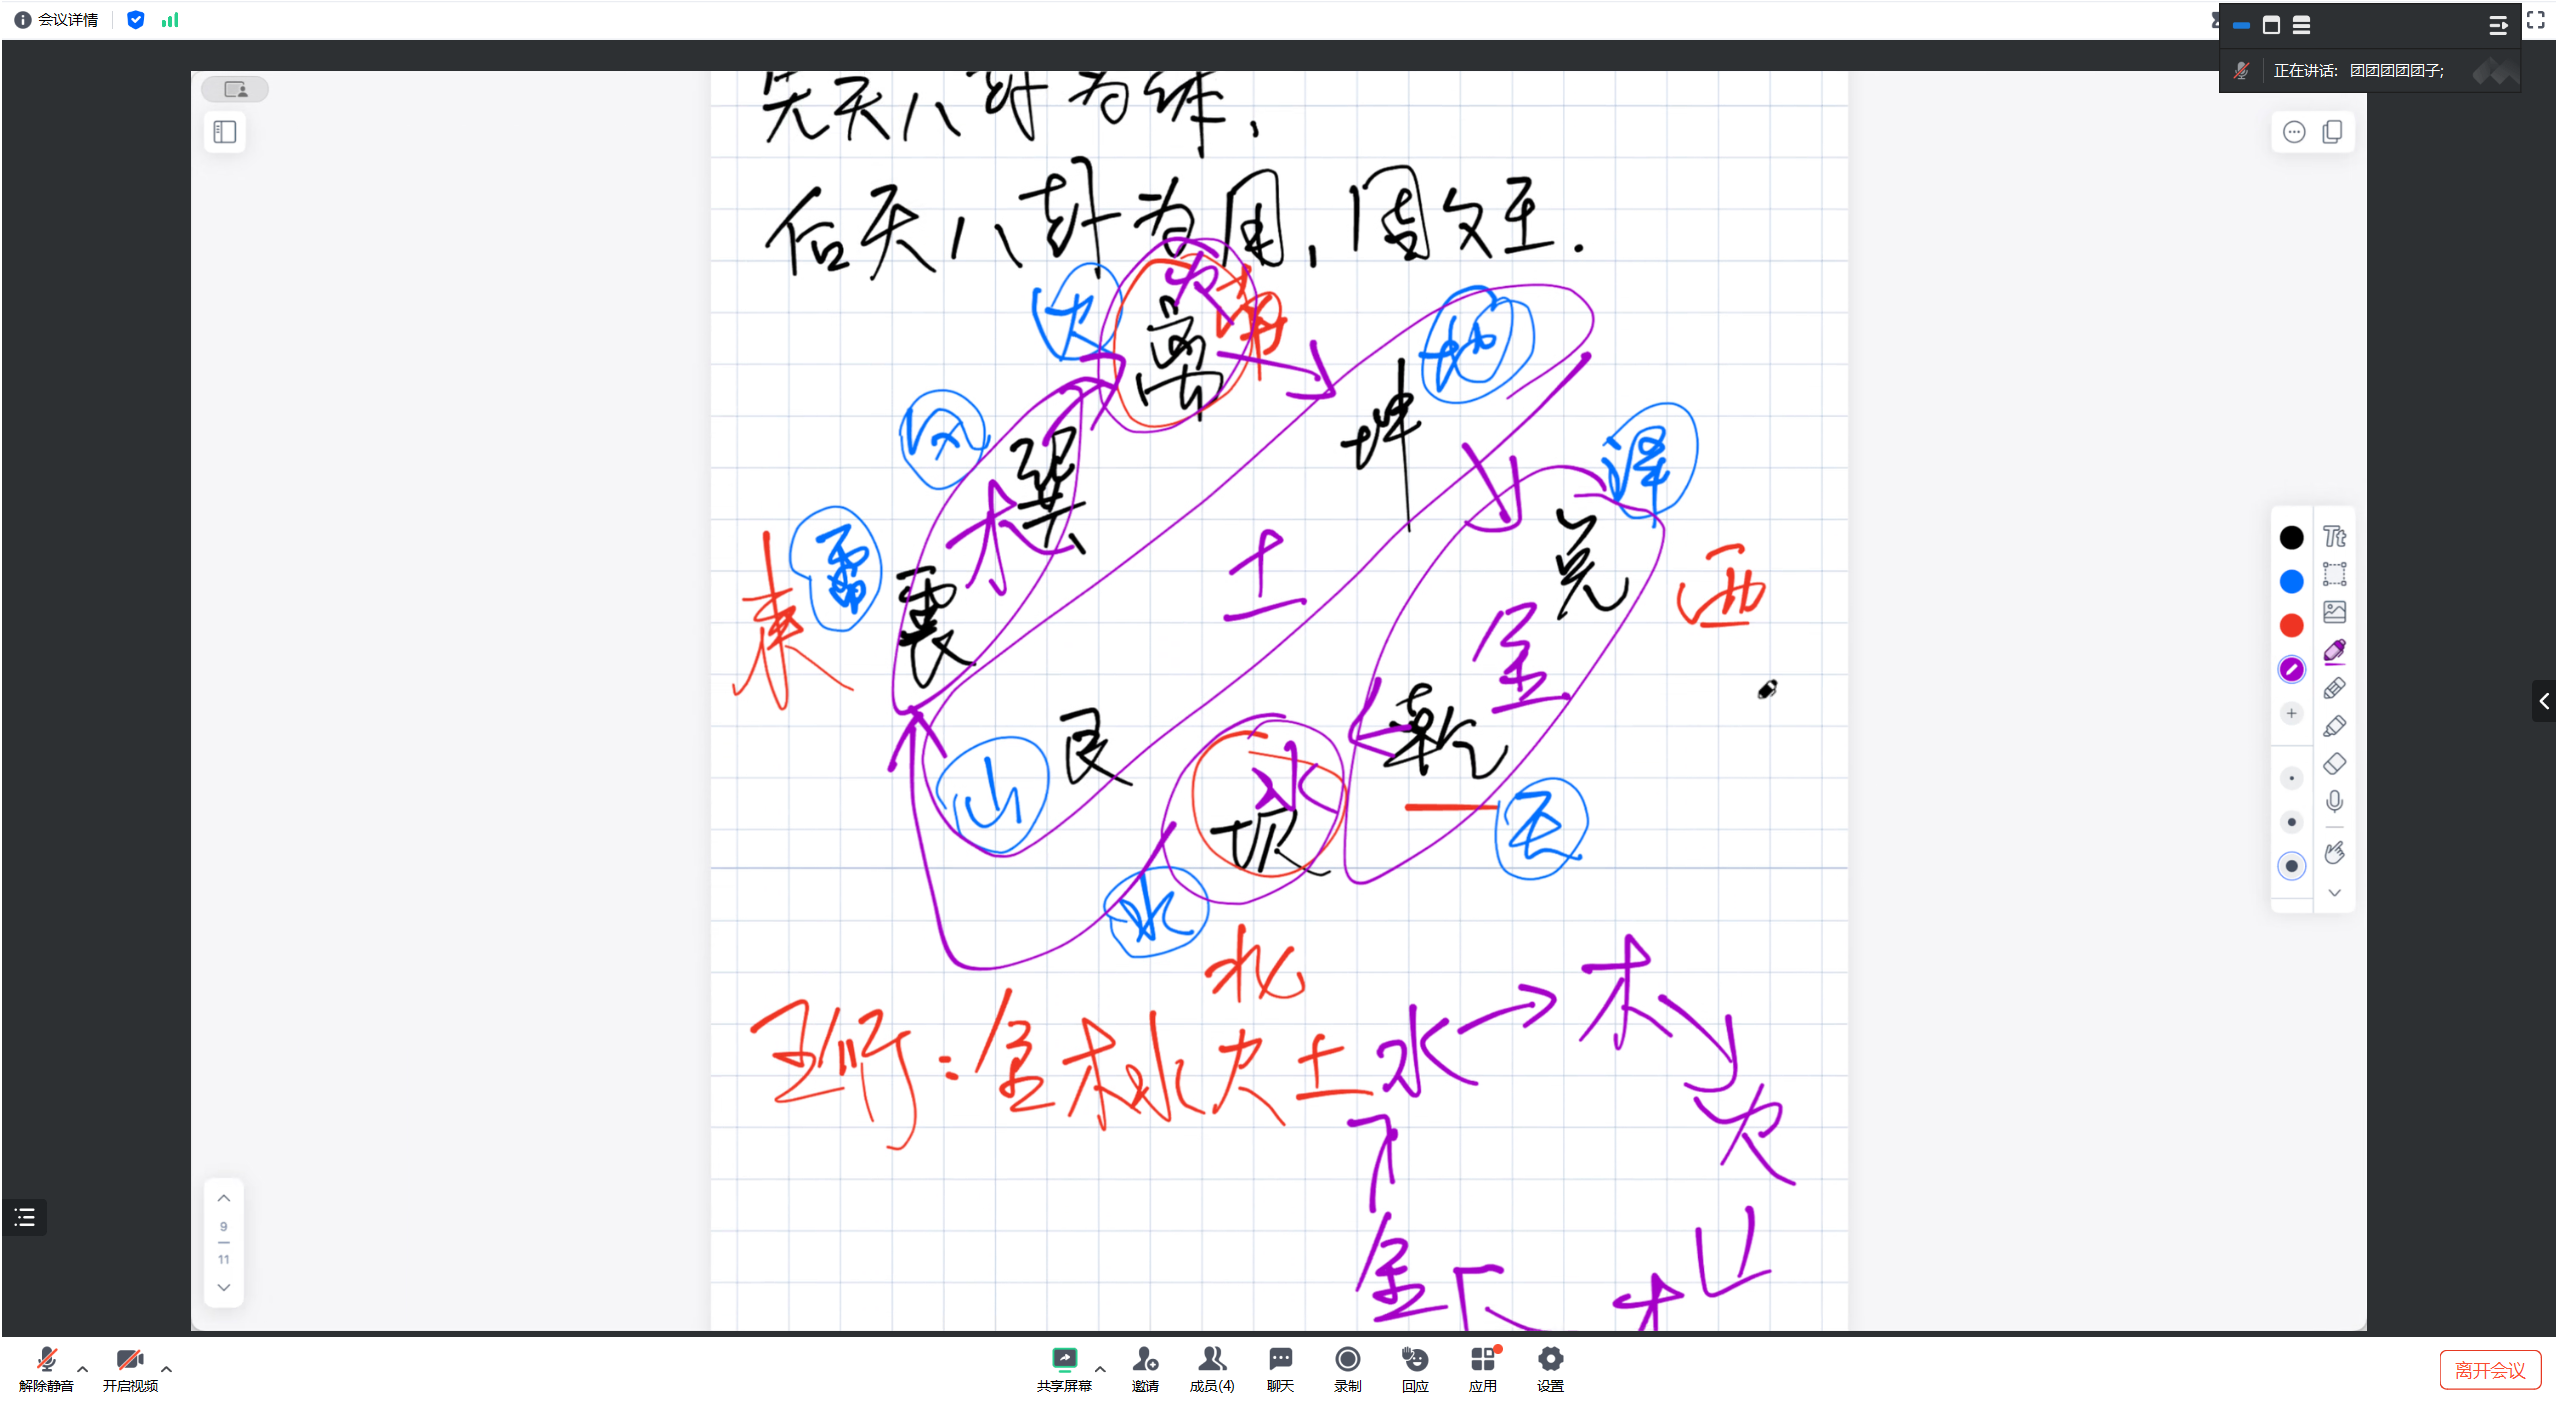 会议详情
正在讲话: 团团团团团子;
先天八卦为体,
后天八卦为用,周文王.
火
火
离
南
地
坤
风
巽
木
泽
兑
雷
震
东
土
金
西
山
艮
水
坎
乾
天
水
北
五行:金木水火土
水
木
火
金
土
Tt
9
11
解除静音
开启视频
共享屏幕
邀请
成员(4)
聊天
录制
回应
应用
设置
离开会议